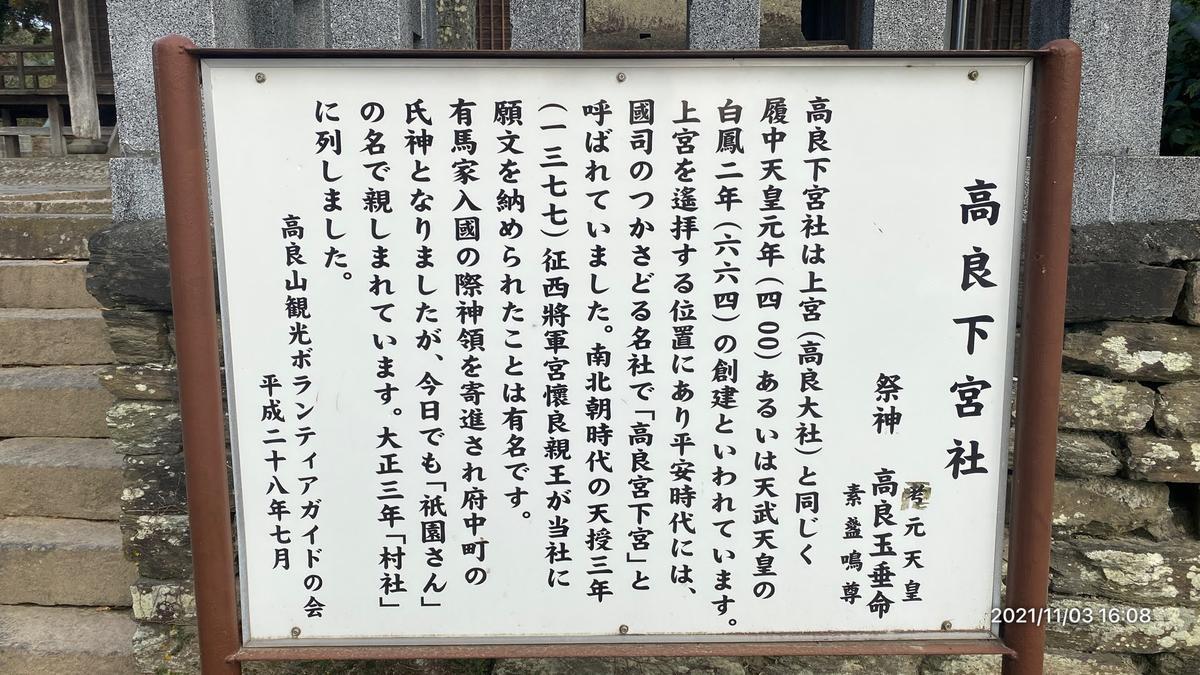 高良下宮社
祭神
考元天皇
高良玉垂命
素盞鳴尊
高良下宮社は上宮(高良大社)と同じく
履中天皇元年(四〇〇)あるいは天武天皇の
白鳳二年(六六四)の創建といわれています。
上宮を遙拝する位置にあり平安時代には、
國司のつかさどる名社で「高良宮下宮」と
呼ばれていました。南北朝時代の天授三年
(一三七七)征西將軍宮懷良親王が当社に
願文を納められたことは有名です。
有馬家入國の際神領を寄進され府中町の
氏神となりましたが、今日でも「祇園さん」
の名で親しまれています。大正三年「村社」
に列しました。
高良山観光ボランティアガイドの会
平成二十八年七月
2021/11/03 16:08